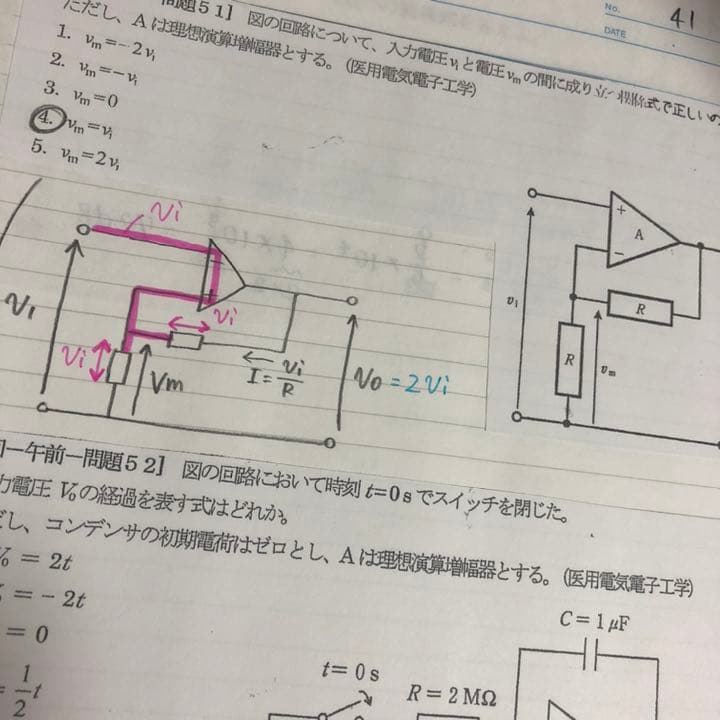 No. 41
DATE
問題51] 図の回路について、入力電圧viと電圧vmの間に成り立つ関係式で正しいの
ただし、Aは理想演算増幅器とする。(医用電気電子工学)
1. vm=-2vi
2. vm=-vi
3. vm=0
4. vm=vi
5. vm=2vi
Vi
Vi
Vi
Vi
Vm
I=Vi/R
Vo=2Vi
+
A
-
R
R
vi
vm
一午前一問題52] 図の回路において時刻t=0sでスイッチを閉じた。
力電圧 Voの経過を表す式はどれか。
だし、コンデンサの初期電荷はゼロとし、Aは理想演算増幅器とする。(医用電気電子工学)
= 2t
= - 2t
= 0
= 1/2 t
C=1μF
t=0s
R=2MΩ